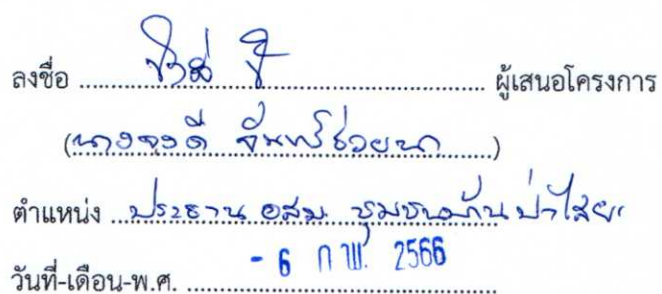 ลงชื่อ ........................ ผู้เสนอโครงการ
(นางจงดี จันทร์ช่วยนา)
ตำแหน่ง ประธาน อสม. ชุมชนบ้านป่าไสย
วันที่-เดือน-พ.ศ. - 6 ก.พ. 2566